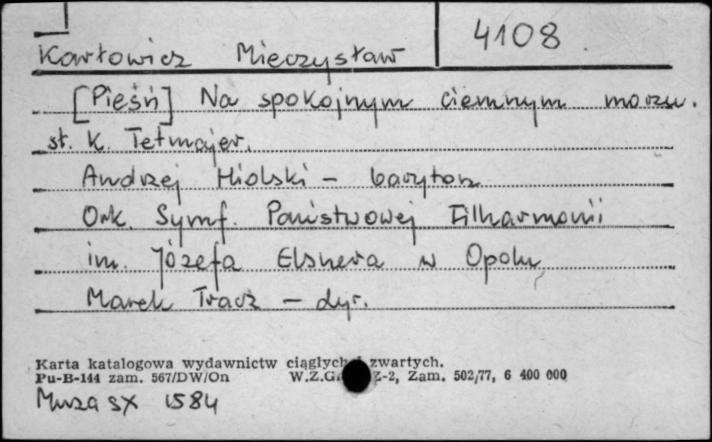 4108
Karłowicz Mieczysław
[Pieśń] Na spokojnym ciemnym morzu.
sł. K. Tetmajer.
Andrzej Hiolski - baryton
Ork. Symf. Państwowej Filharmonii
im. Józefa Elsnera w Opolu
Marek Tracz - dyr.
Karta katalogowa wydawnictw ciągłych zwartych.
Pu-B-144 zam. 567/DW/On W.Z.G. Z-2, Zam. 502/77, 6 400 000
Muza SX 1584